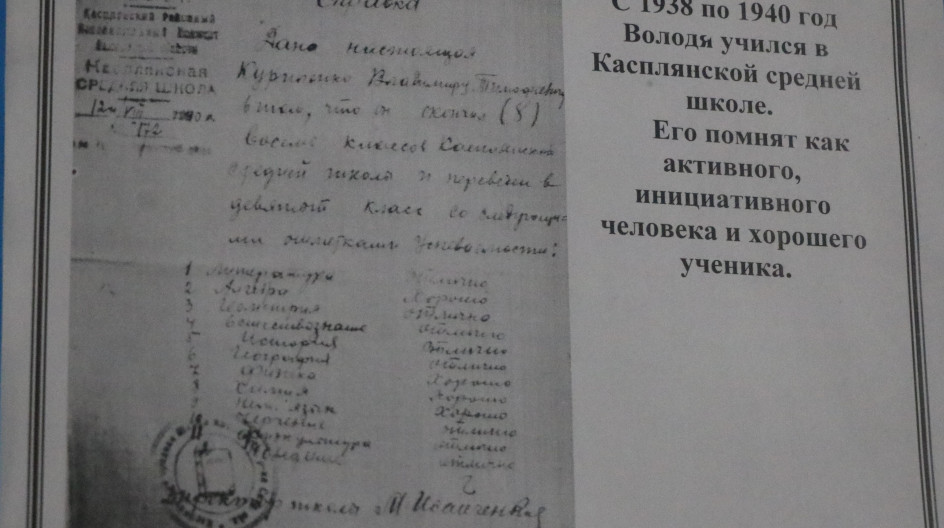 Справка
Касплянский Районный
Касплянская
СРЕДНЯЯ ШКОЛА
Дано настоящая
Владимиру Тимофеевичу
в том, что он окончил (8)
восемь классов Касплянской
средней школы и переведен в
девятый класс со следующи-
ми отметками успеваемости:
1 Литература отлично
2 Алгебра хорошо
3 Геометрия отлично
4 Естествознание отлично
5 История отлично
6 География отлично
7 Физика хорошо
8 Химия хорошо
9 Нем. язык хорошо
10 Черчение отлично
отлично
отлично
Директор школы М Иванченков
С 1938 по 1940 год
Володя учился в
Касплянской средней
школе.
Его помнят как
активного,
инициативного
человека и хорошего
ученика.